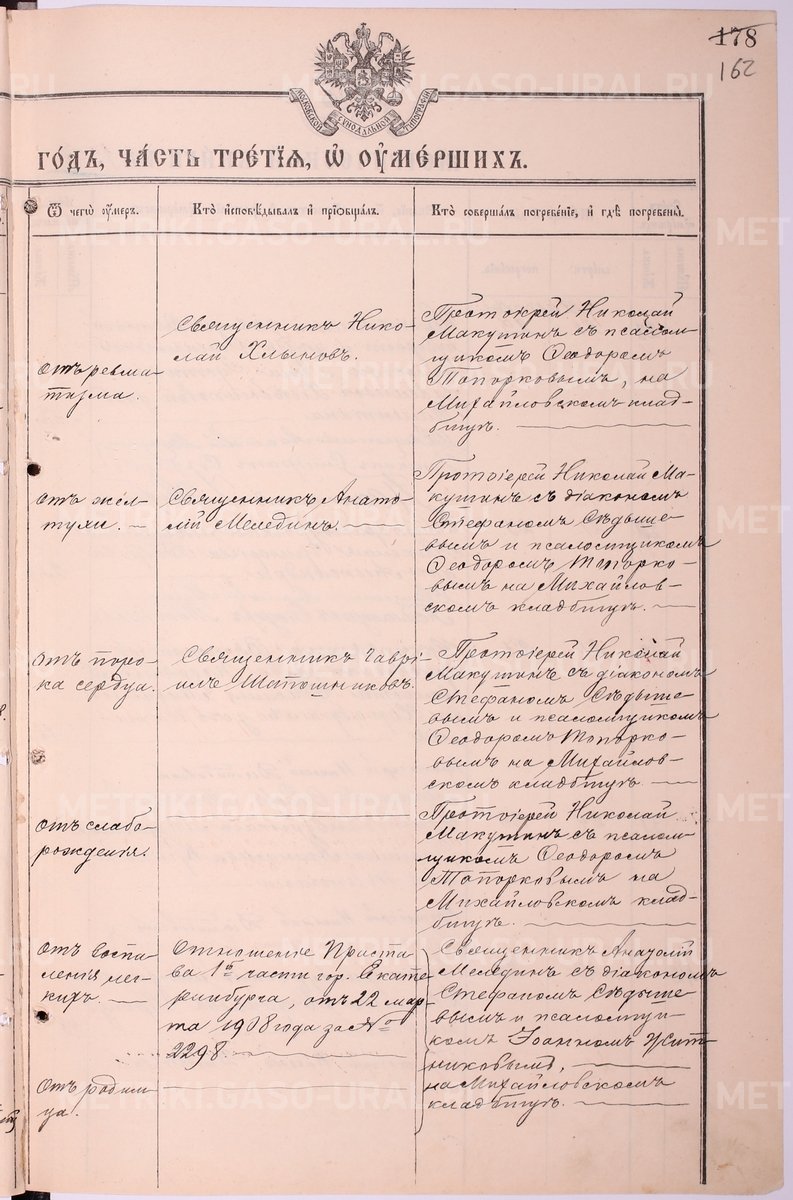 178
162
МОСКОВСКОЙ СѴНОДАЛЬНОЙ ТИПОГРАФІИ
ГО́ДЪ, ЧА́СТЬ ТРЕ́ТІѦ, Ѡ҆ ОУ҆МЕ́РШИХЪ.
Ѿ чегѡ̀ оу҆́меръ.
Кто̀ и҆сповѣ́дывалъ и҆ прїѡбща́лъ.
Кто̀ соверша́лъ погребе́нїе, и҆ гдѣ̀ погребены̀.
отъ ревма-
тизма.
Священникъ Нико-
лай Хлыновъ.
Протоіерей Николай
Макушинъ съ псалом-
щикомъ Ѳеодоромъ
Топорковымъ, на
Михайловскомъ клад-
бищѣ.
отъ жел-
тухи.
Священникъ Анато-
лій Мелединъ.
Протоіерей Николай Ма-
кушинъ съ діакономъ
Стефаномъ Сѣдыше-
вымъ и псаломщикомъ
Ѳеодоромъ Топорко-
вымъ на Михайлов-
скомъ кладбищѣ.
отъ поро-
ка сердца.
Священникъ Гаврі-
илъ
Протоіерей Николай
Макушинъ съ діакономъ
Стефаномъ Сѣдыше-
вымъ и псаломщикомъ
Ѳеодоромъ Топорко-
вымъ на Михайлов-
скомъ кладбищѣ.
отъ слабо-
рожденія.
Протоіерей Николай
Макушинъ съ псалом-
щикомъ Ѳеодоромъ
Топорковымъ на
Михайловскомъ клад-
бищѣ.
Отъ воспа-
ленія лег-
кихъ.
Отношеніе Приста-
ва 1й части гор. Екате-
ринбурга, отъ 22 мар-
та 1908 года за №
2298.
Священникъ Анатолій
Мелединъ съ діакономъ
Стефаномъ Сѣдыше-
вымъ и псаломщи-
комъ Іоанномъ Жит-
никовымъ,
на Михайловскомъ
кладбищѣ.
Отъ родим-
ца.
METRIKI.GASO-URAL.RU